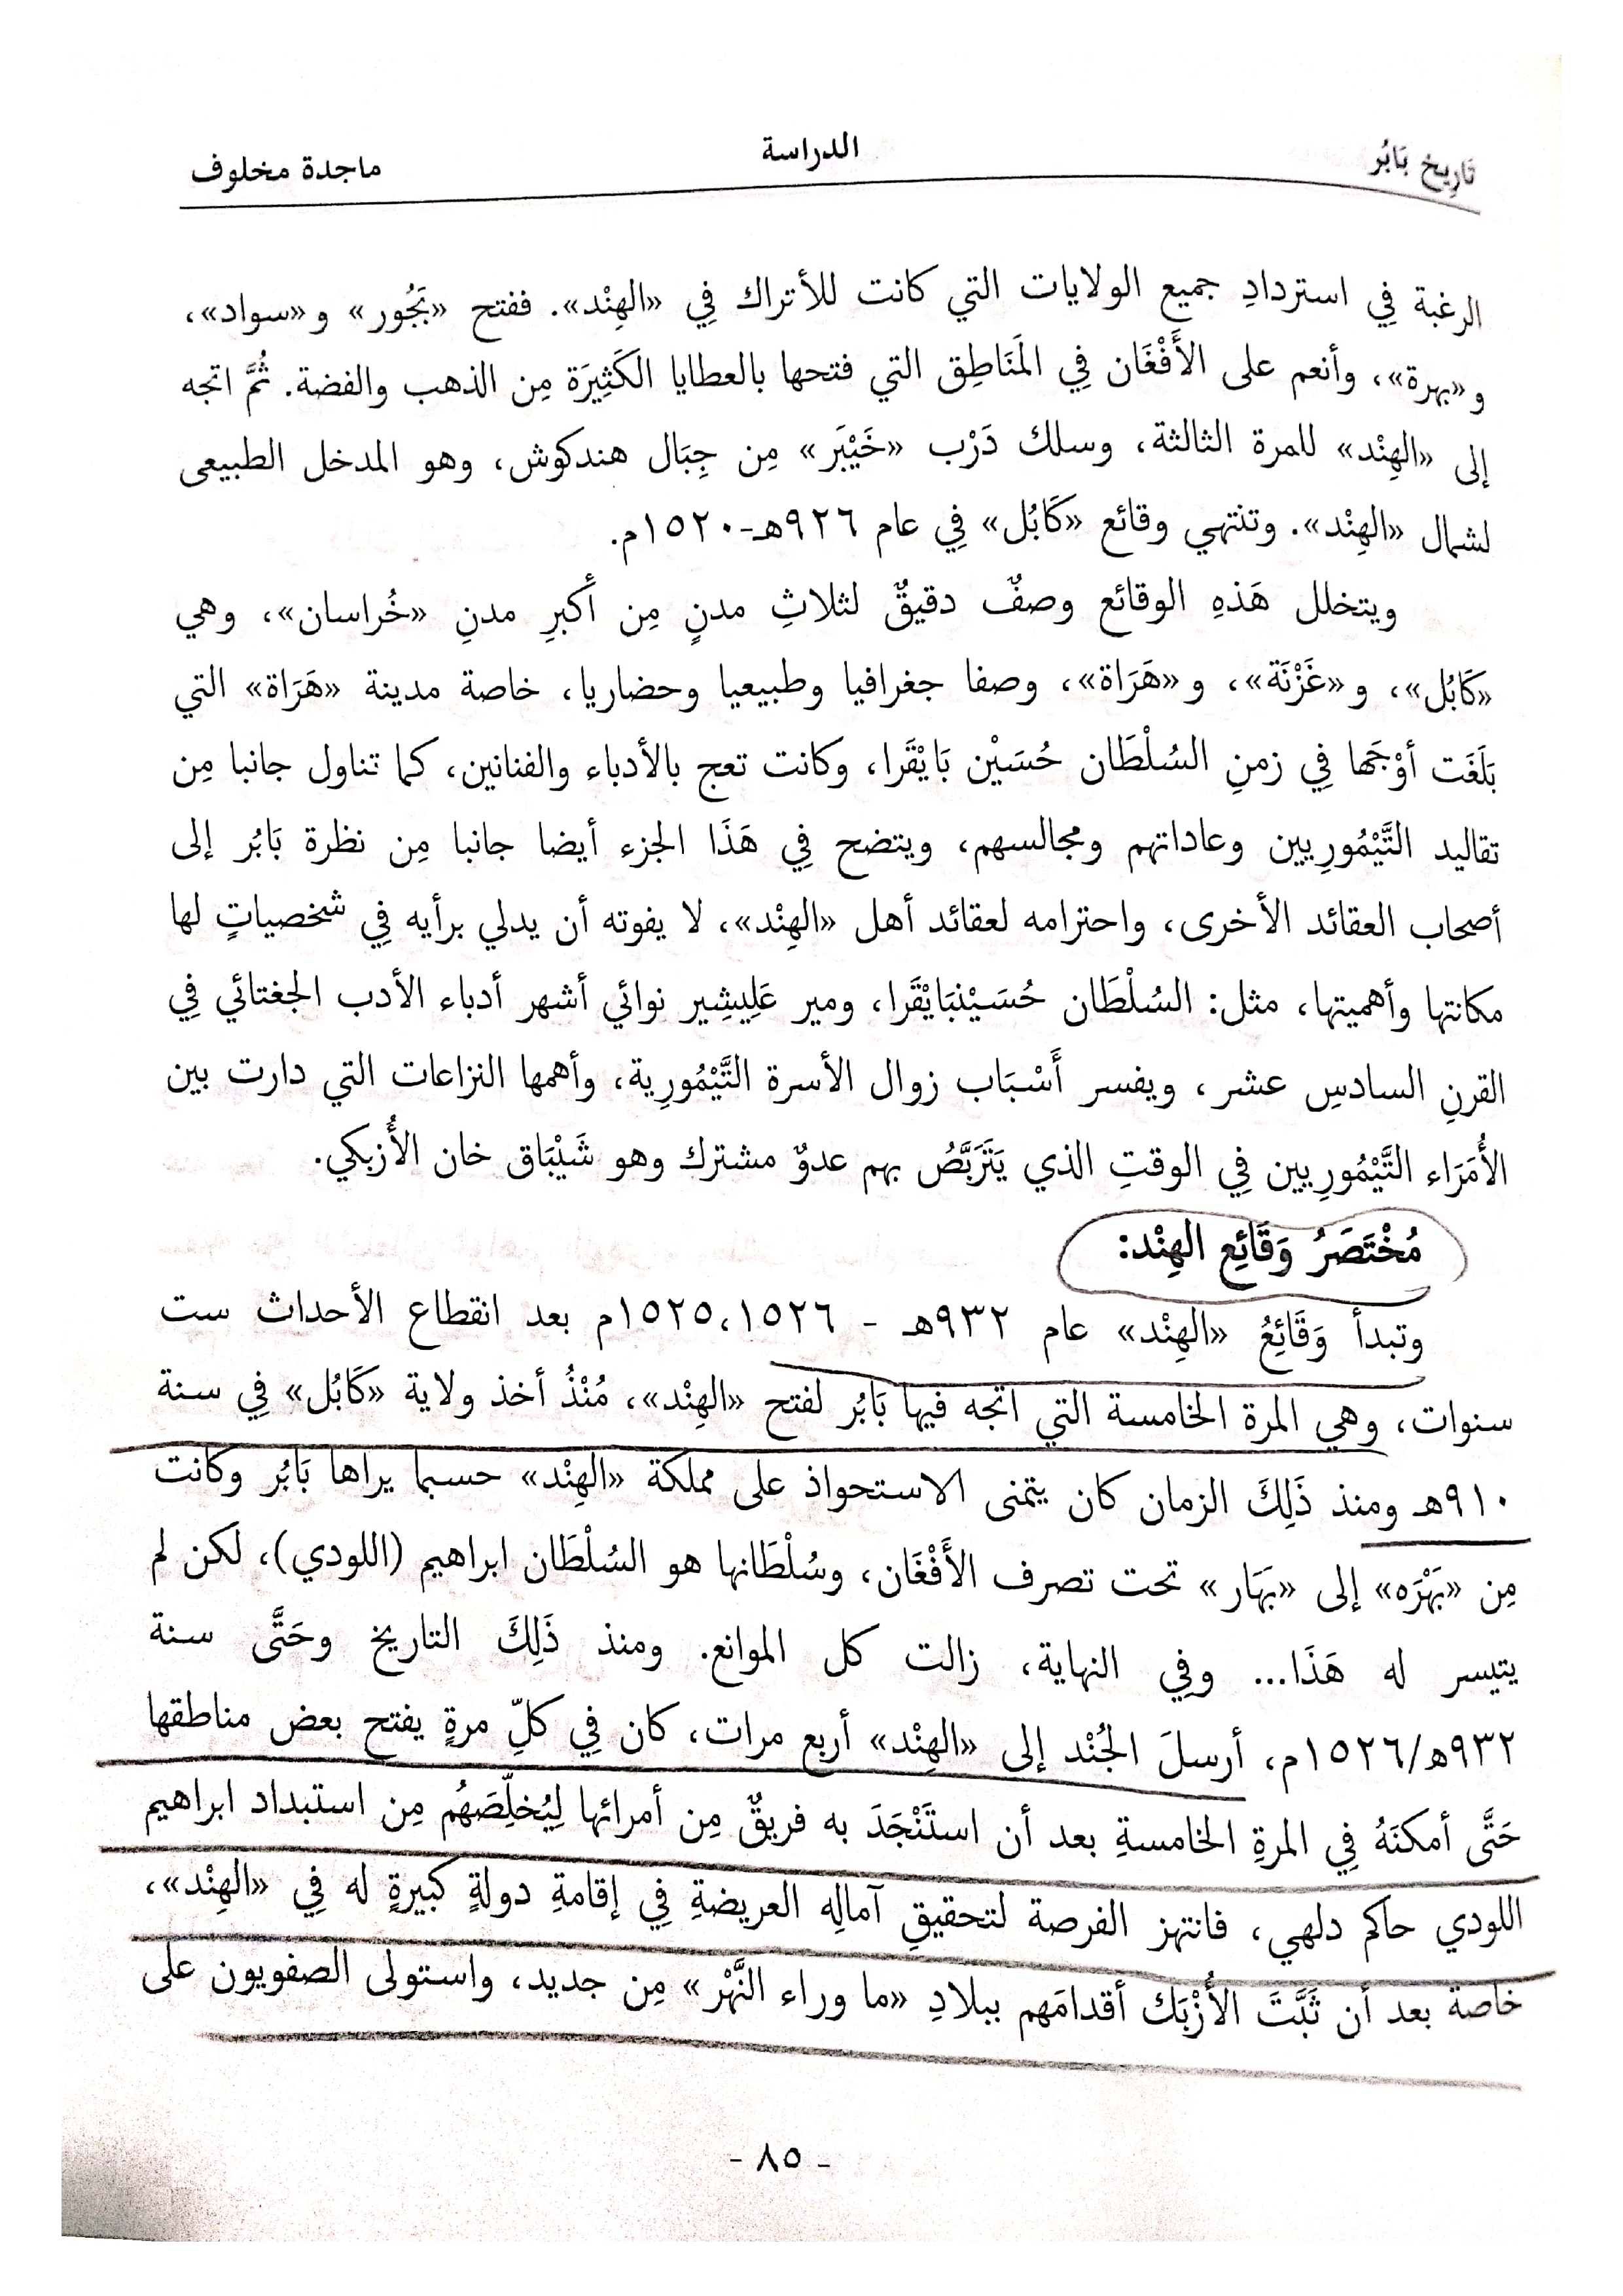 تَارِيخ بَابُر
الدراسة
ماجدة مخلوف
الرغبة فِي استردادِ جميع الولايات التي كانت للأتراك فِي «الهِنْد». ففتح «بَجُور» و«سواد»،
و«بهرة»، وأنعم على الأَفْغَان فِي المَنَاطِق التي فتحها بالعطايا الكَثِيرَة مِن الذهب والفضة. ثُمَّ اتجه
إلى «الهِنْد» للمرة الثالثة، وسلك دَرْب «خَيْبَر» مِن جِبَال هندكوش، وهو المدخل الطبيعى
لشمال «الهِنْد». وتنتهي وقائع «كَابُل» فِي عام ٩٢٦هـ-١٥٢٠م.
ويتخلل هَذهِ الوقائع وصفٌ دقيقٌ لثلاثِ مدنٍ مِن أكبرِ مدنِ «خُراسان»، وهي
«كَابُل»، و«غَزْنَة»، و«هَرَاة»، وصفا جغرافيا وطبيعيا وحضاريا، خاصة مدينة «هَرَاة» التي
بَلَغَت أوْجَها فِي زمنِ السُلْطَان حُسَيْن بَايْقَرا، وكانت تعج بالأدباء والفنانين، كما تناول جانبا مِن
تقاليد التَّيْمُورِيين وعاداتهم ومجالسهم، ويتضح فِي هَذَا الجزء أيضا جانبا مِن نظرة بَابُر إلى
أصحاب العقائد الأخرى، واحترامه لعقائد أهل «الهِنْد»، لا يفوته أن يدلي برأيه فِي شخصياتٍ لها
مكانتها وأهميتها، مثل: السُلْطَان حُسَيْنبَايْقَرا، ومير عَلِيشِير نوائي أشهر أدباء الأدب الجغتائي فِي
القرنِ السادسِ عشر، ويفسر أَسْبَاب زوال الأسرة التَّيْمُورِية، وأهمها النزاعات التي دارت بين
الأُمَرَاء التَّيْمُورِيين فِي الوقتِ الذي يَتَرَبَّصُ بهم عدوٌ مشترك وهو شَيْبَاق خان الأُزبكي.
مُخْتَصَرُ وَقَائِع الهِنْد:
وتبدأ وَقَائِعُ «الهِنْد» عام ٩٣٢هـ - ١٥٢٥،١٥٢٦م بعد انقطاع الأحداث ست
سنوات، وهي المرة الخامسة التي اتجه فيها بَابُر لفتح «الهِنْد»، مُنْذُ أخذ ولاية «كَابُل» فِي سنة
٩١٠هـ ومنذ ذَلِكَ الزمان كان يتمنى الاستحواذ على مملكة «الهِنْد» حسبما يراها بَابُر وكانت
مِن «بَهْرَه» إلى «بَهَار» تحت تصرف الأَفْغَان، وسُلْطَانها هو السُلْطَان ابراهيم (اللودي)، لكن لم
يتيسر له هَذَا... وفِي النهاية، زالت كل الموانع. ومنذ ذَلِكَ التاريخ وحَتَّى سنة
٩٣٢هـ/١٥٢٦م، أرسلَ الجُنْد إلى «الهِنْد» أربع مرات، كان فِي كلِّ مرةٍ يفتح بعض مناطقها
حَتَّى أمكنَهُ فِي المرةِ الخامسةِ بعد أن استَنْجَدَ به فريقٌ مِن أمرائها لِيُخلِّصَهُم مِن استبداد ابراهيم
اللودي حاكم دلهي، فانتهز الفرصة لتحقيقِ آمالِه العريضةِ فِي إقامةِ دولةٍ كبيرةٍ له فِي «الهِنْد»،
خاصة بعد أن ثَبَّتَ الأُزْبَك أقدامَهم ببلادِ «ما وراء النَّهْر» مِن جديد، واستولى الصفويون على
- ٨٥ -